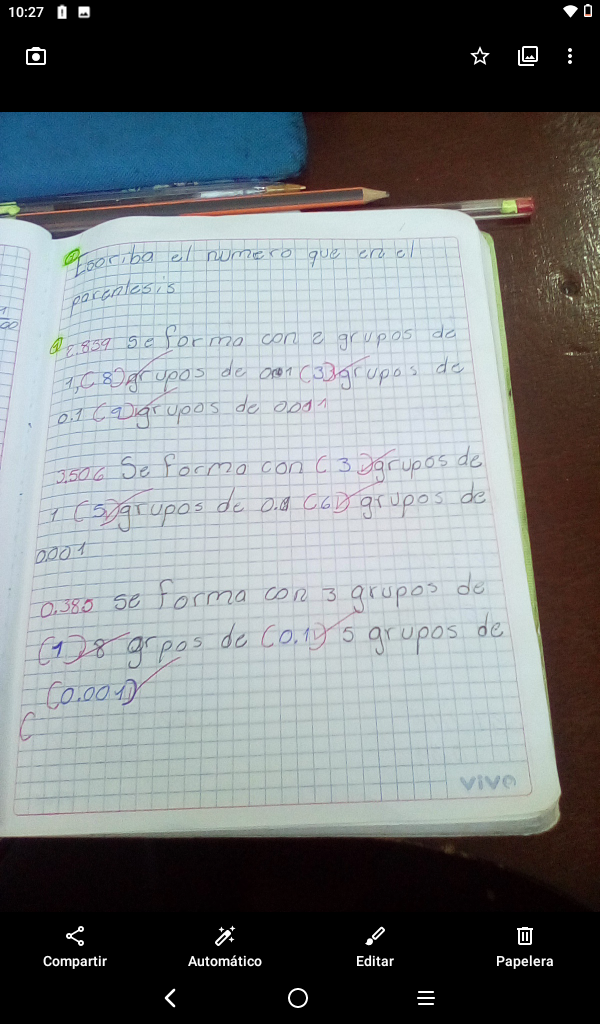 10:27
1
00
Escriba el numero que en el
parentesis
2.839 se forma con 2 grupos de
1, (8) grupos de 0.01 (3) grupos de
0.1 (9) grupos de 0.011
3.506 Se forma con (3) grupos de
1 (5) grupos de 0.1 (6) grupos de
0.001
0.385 se forma con 3 grupos de
(1) 8 grpos de (0.1) 5 grupos de
(0.001)
(
vivo
Compartir
Automático
Editar
Papelera